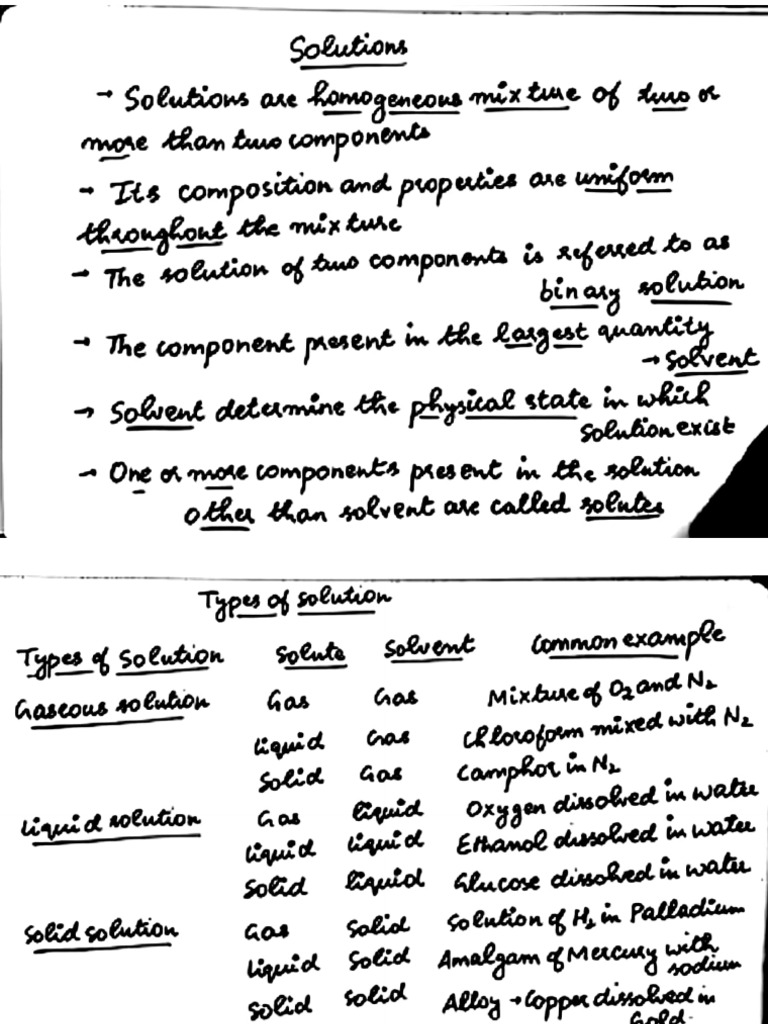 Solutions
→ Solutions are homogeneous mixture of two or
more than two components
→ Its composition and properties are uniform
throughout the mixture
→ The solution of two components is referred to as
binary solution
→ The component present in the largest quantity
→ Solvent
→ Solvent determine the physical state in which
solution exist
→ One or more components present in the solution
other than solvent are called solutes
Types of solution
Types of Solution Solute Solvent Common example
Gaseous solution Gas Gas Mixture of O2 and N2
liquid Gas Chloroform mixed with N2
Solid Gas Camphor in N2
Liquid solution Gas liquid Oxygen dissolved in water
liquid liquid Ethanol dissolved in water
Solid liquid Glucose dissolved in water
Solid solution Gas Solid Solution of H2 in Palladium
liquid Solid Amalgam of Mercury with
sodium
Solid Solid Alloy → Copper dissolved in
Gold.